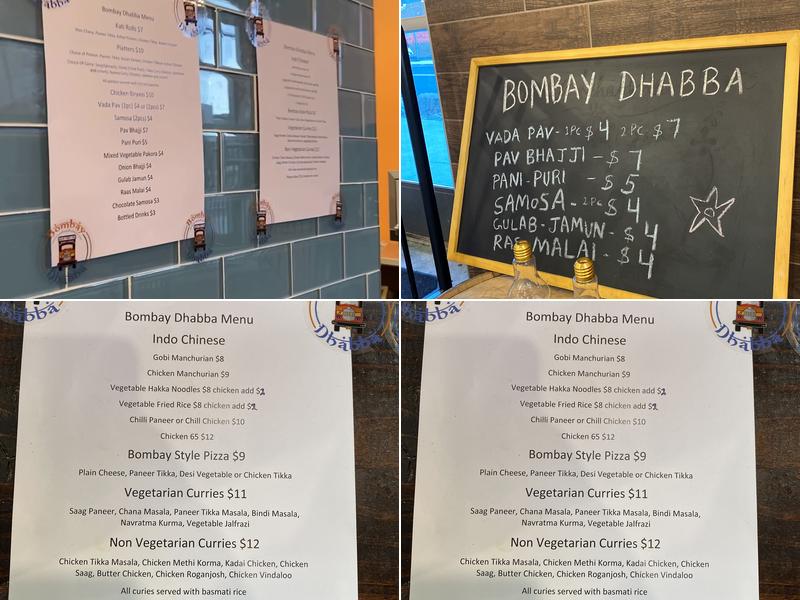 Bombay Dhabba Menu
Kati Rolls $7
Platters $10
Chicken Biryani $10
Vada Pav (1pc) $4 or (2pcs) $7
Samosa (2pcs) $4
Pav Bhajji $7
Pani Puri $5
Mixed Vegetable Pakora $4
Onion Bhajji $4
Gulab Jamun $4
Raas Malai $4
Chocolate Samosa $3
Bottled Drinks $3
Bombay
Bombay Dhabba Menu
Indo Chinese
BOMBAY DHABBA
VADA PAV - 1PC $4 2PC $7
PAV BHAJJI - $7
PANI-PURI - $5
SAMOSA - 2PC $4
GULAB-JAMUN - $4
RAS MALAI - $4
Dhabba
Bombay Dhabba Menu
Indo Chinese
Gobi Manchurian $8
Chicken Manchurian $9
Vegetable Hakka Noodles $8 chicken add $2
Vegetable Fried Rice $8 chicken add $2
Chilli Paneer or Chill Chicken $10
Chicken 65 $12
Bombay Style Pizza $9
Plain Cheese, Paneer Tikka, Desi Vegetable or Chicken Tikka
Vegetarian Curries $11
Saag Paneer, Chana Masala, Paneer Tikka Masala, Bindi Masala,
Navratma Kurma, Vegetable Jalfrazi
Non Vegetarian Curries $12
Chicken Tikka Masala, Chicken Methi Korma, Kadai Chicken, Chicken
Saag, Butter Chicken, Chicken Roganjosh, Chicken Vindaloo
All curies served with basmati rice
Dhabba
Bombay Dhabba Menu
Indo Chinese
Gobi Manchurian $8
Chicken Manchurian $9
Vegetable Hakka Noodles $8 chicken add $2
Vegetable Fried Rice $8 chicken add $2
Chilli Paneer or Chill Chicken $10
Chicken 65 $12
Bombay Style Pizza $9
Plain Cheese, Paneer Tikka, Desi Vegetable or Chicken Tikka
Vegetarian Curries $11
Saag Paneer, Chana Masala, Paneer Tikka Masala, Bindi Masala,
Navratma Kurma, Vegetable Jalfrazi
Non Vegetarian Curries $12
Chicken Tikka Masala, Chicken Methi Korma, Kadai Chicken, Chicken
Saag, Butter Chicken, Chicken Roganjosh, Chicken Vindaloo
All curies served with basmati rice